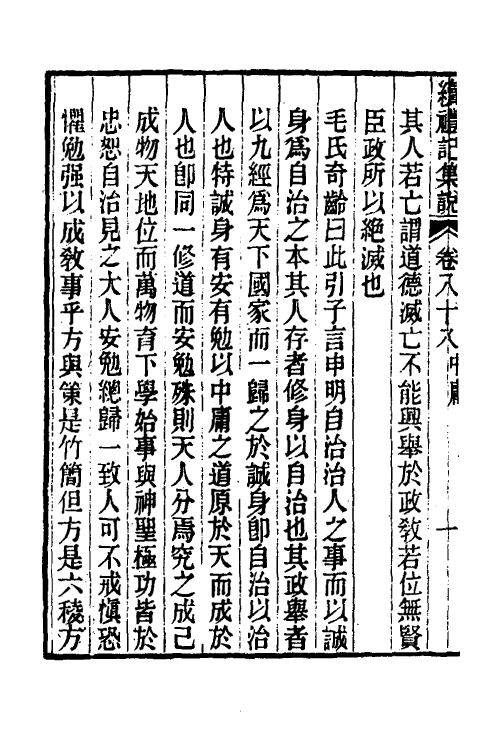 續禮記集說卷八十八 中庸 一
其人若亡謂道德滅亡不能興舉於政敎若位無賢
臣政所以絕滅也
毛氏奇齡曰此引子言申明自治治人之事而以誠
身爲自治之本其人存者修身以自治也其政舉者
以九經爲天下國家而一歸之於誠身卽自治以治
人也特誠身有安有勉以中庸之道原於天而成於
人也卽同一修道而安勉殊則天人分焉究之成己
成物天地位而萬物育下學始事與神聖極功皆於
忠恕自治見之大人安勉總歸一致人可不戒愼恐
懼勉强以成敎事乎方與策是竹簡但方是六稜方